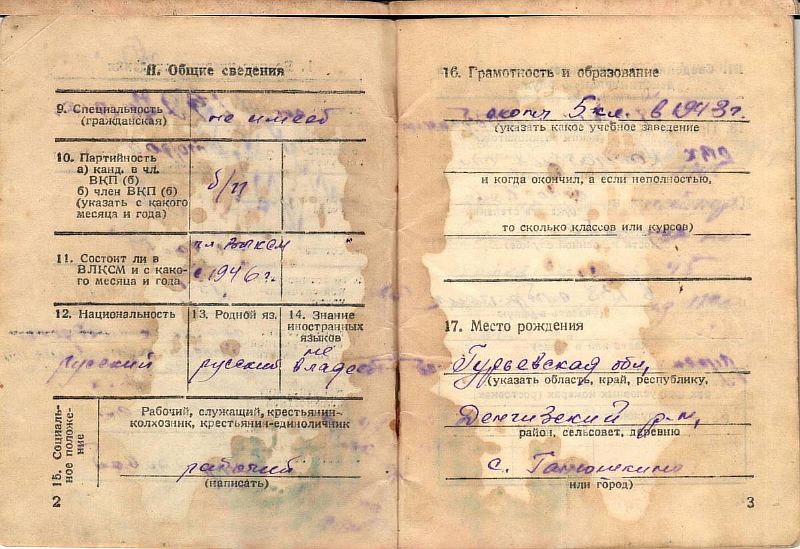 II. Общие сведения
9. Специальность
(гражданская)
не имеет
10. Партийность
а) канд. в чл.
ВКП (б)
б) член ВКП (б)
(указать с какого
месяца и года)
б/п
11. Состоит ли в
ВЛКСМ и с како-
го месяца и года
чл ВЛКСМ
с 1946 г.
12. Национальность
русский
13. Родной яз.
русский
14. Знание
иностранных
языков
не
владеет
15. Социаль-
ное положе-
ние
Рабочий, служащий, крестьянин-
колхозник, крестьянин-единоличник
рабочий
(написать)
2
16. Грамотность и образование
оконч 5 кл. в 1943 г.
(указать какое учебное заведение
и когда окончил, а если неполностью,
то сколько классов или курсов)
17. Место рождения
Гурьевская обл,
(указать область, край, республику,
Денгизский р-н,
район, сельсовет, деревню
с. Ганюшкино
или город)
3